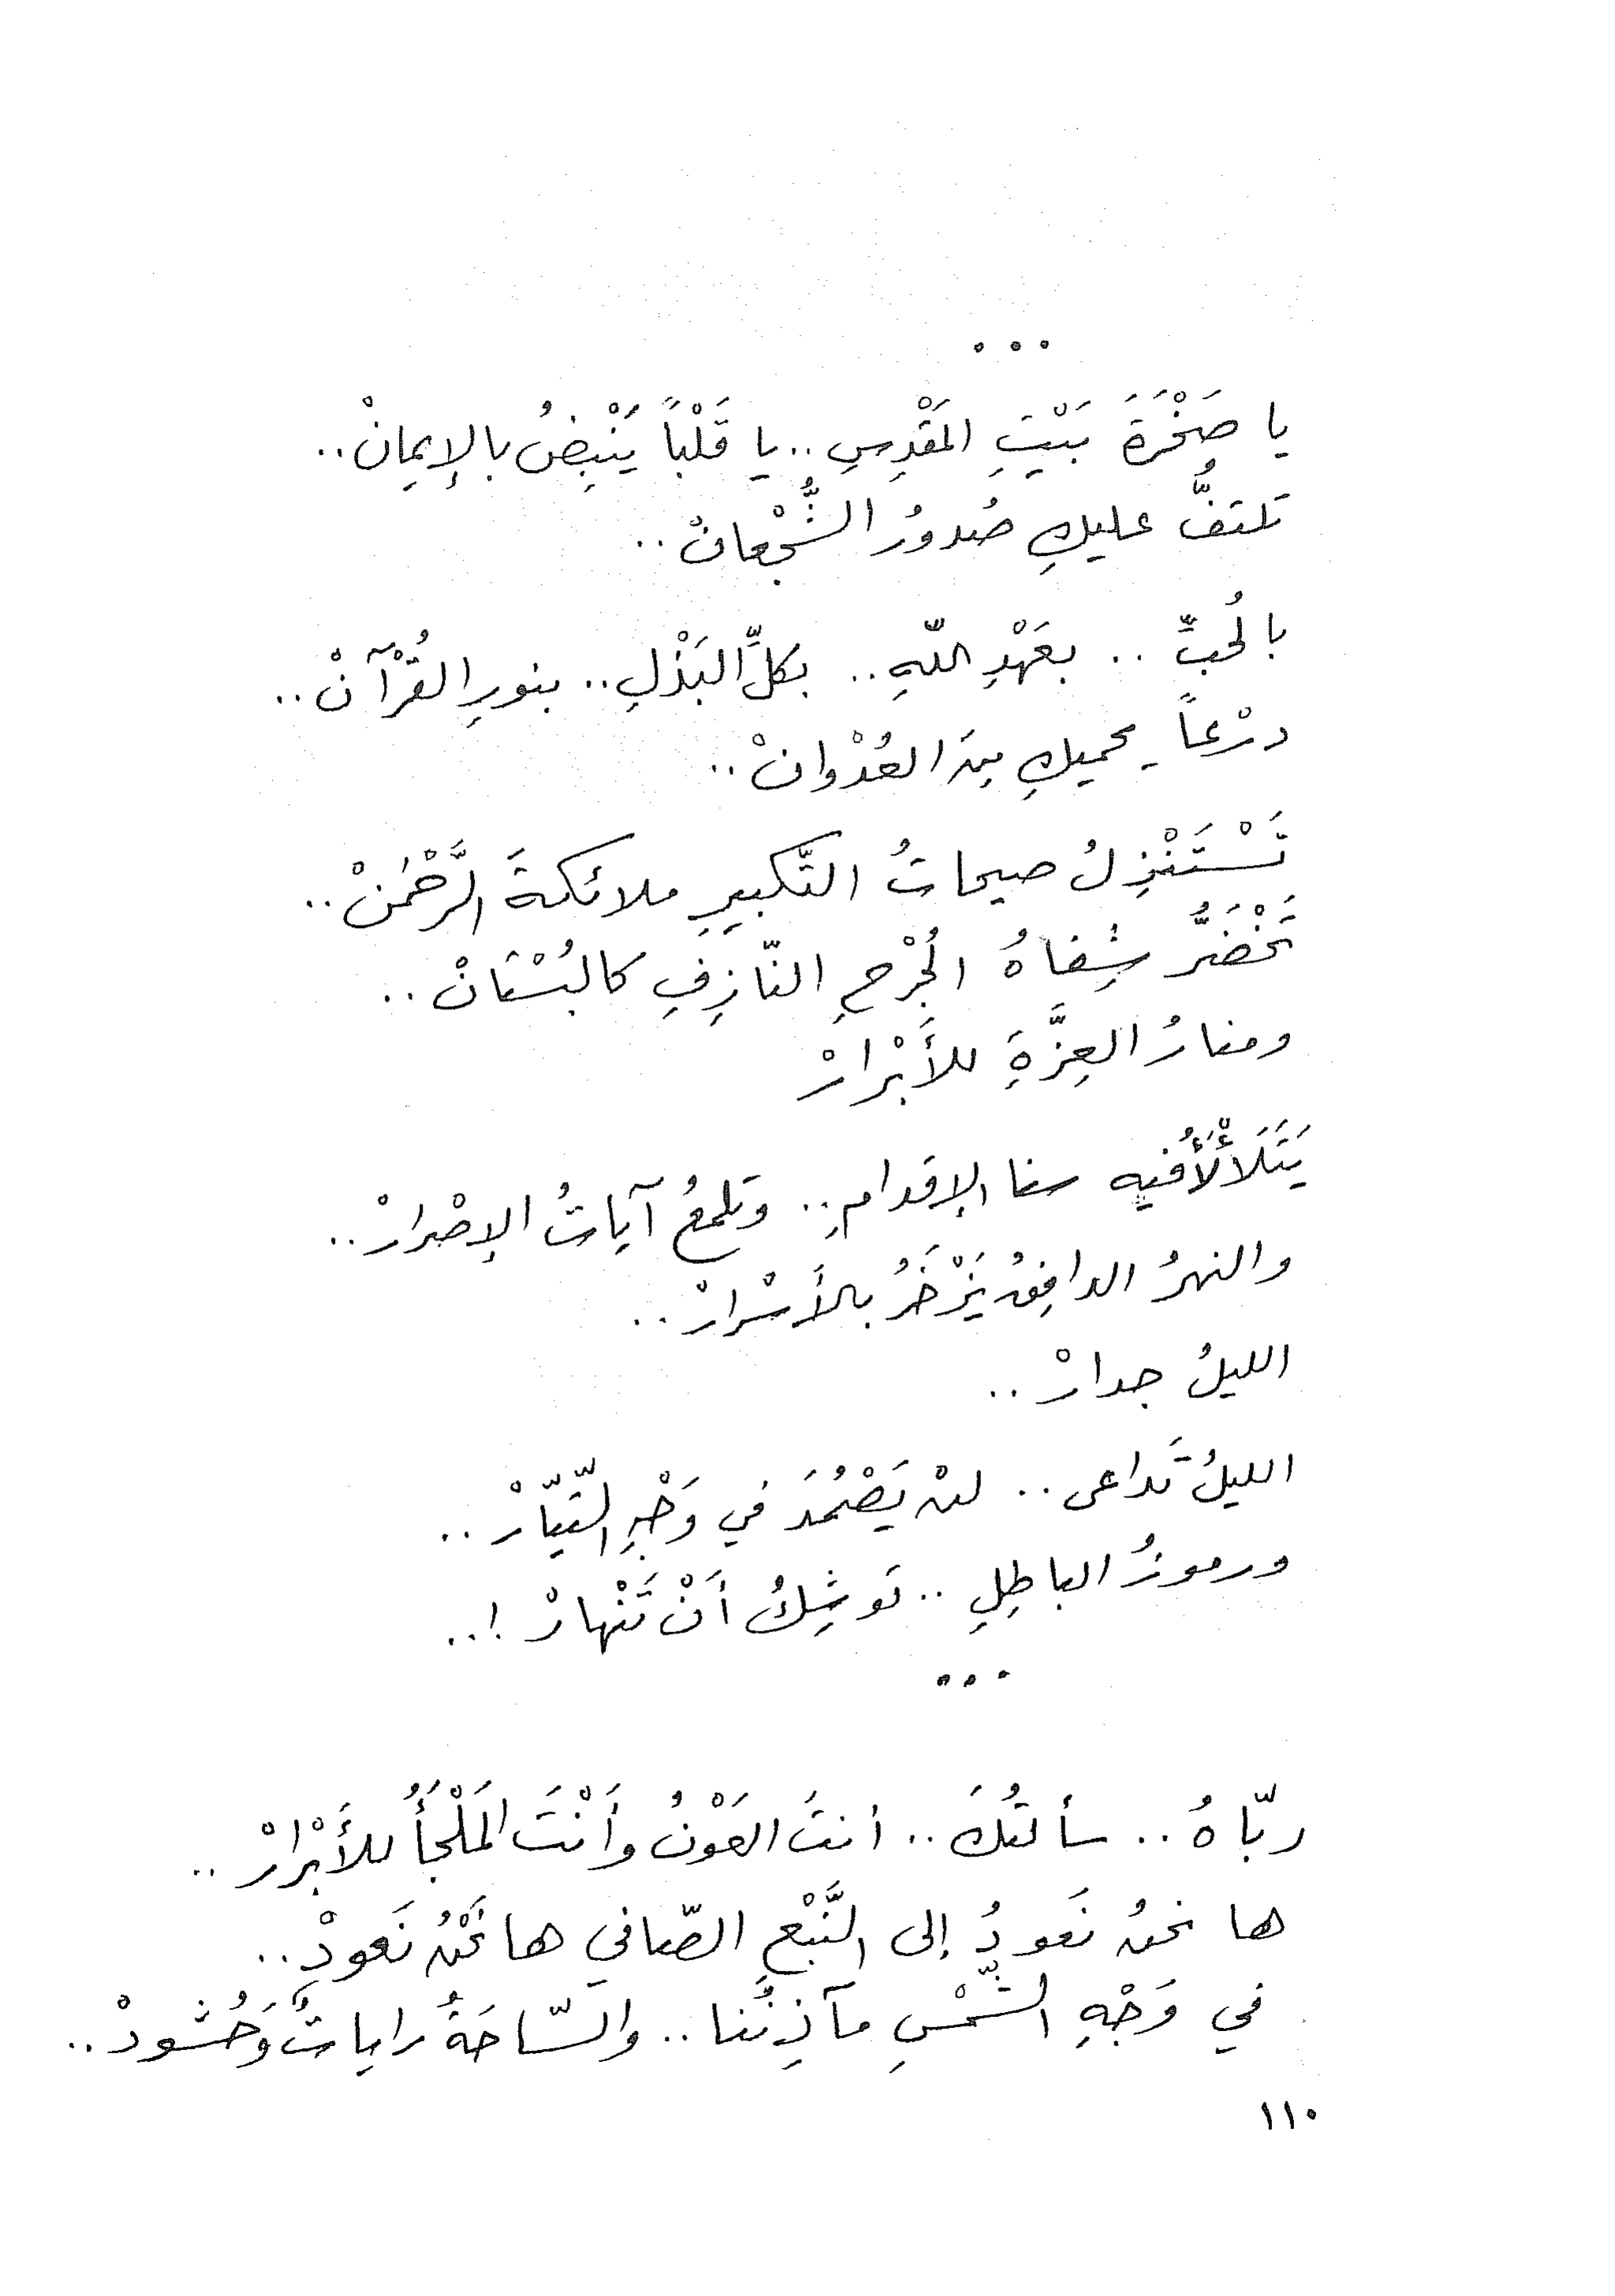 ...
يا صَخْرَةَ بَيْتِ المَقْدِسِ .. يا قَلْباً يَنْبِضُ بالإِيمِانْ ..
تلتفُّ عليكِ صُدورُ الشُّجْعانْ ..
بالُحبِّ .. بعَهْدِ اللّهِ .. بكلِّ البَذْلِ .. بنورِ القُرْآنْ ..
درْعاً يحميكِ مِنَ العُدْوانْ ..
تَسْتَنْزِلُ صيحاتُ التّكبيرِ ملائكةَ الرَّحْمٰنْ ..
تَخْضَرُّ شِفاهُ الُجرْحِ النّازِفِ كالبُسْتَانْ ..
ومنارُ العِزَّةِ للأَبْرارْ
يَتَلَأْلَأُ فيهِ سنا الإقدامِ .. وتلمعُ آياتُ الإصْرارْ ..
والنهرُ الدافِقُ يَزْخَرُ بالأَسْرارْ ..
الليلُ جدارْ ..
الليلُ تَداعى .. لنْ يَصْمُدَ في وَجْهِ التّيّارْ ..
ورموزُ الباطِلِ .. توشِكُ أَنْ تَنْهارْ ! ..
...
ربّاهُ .. سألتُكَ .. أنتَ العَوْنُ وأَنْتَ المَلْجَأُ للأَبْرارْ ..
ها نحنُ نَعودُ إلى النَّبْعِ الصّافي ها نَحْنُ نَعودْ ..
في وَجْهِ الشّمْسِ مآذِنُنا .. والسّاحَةُ راياتٌ وَحُشودْ ..
١١٠